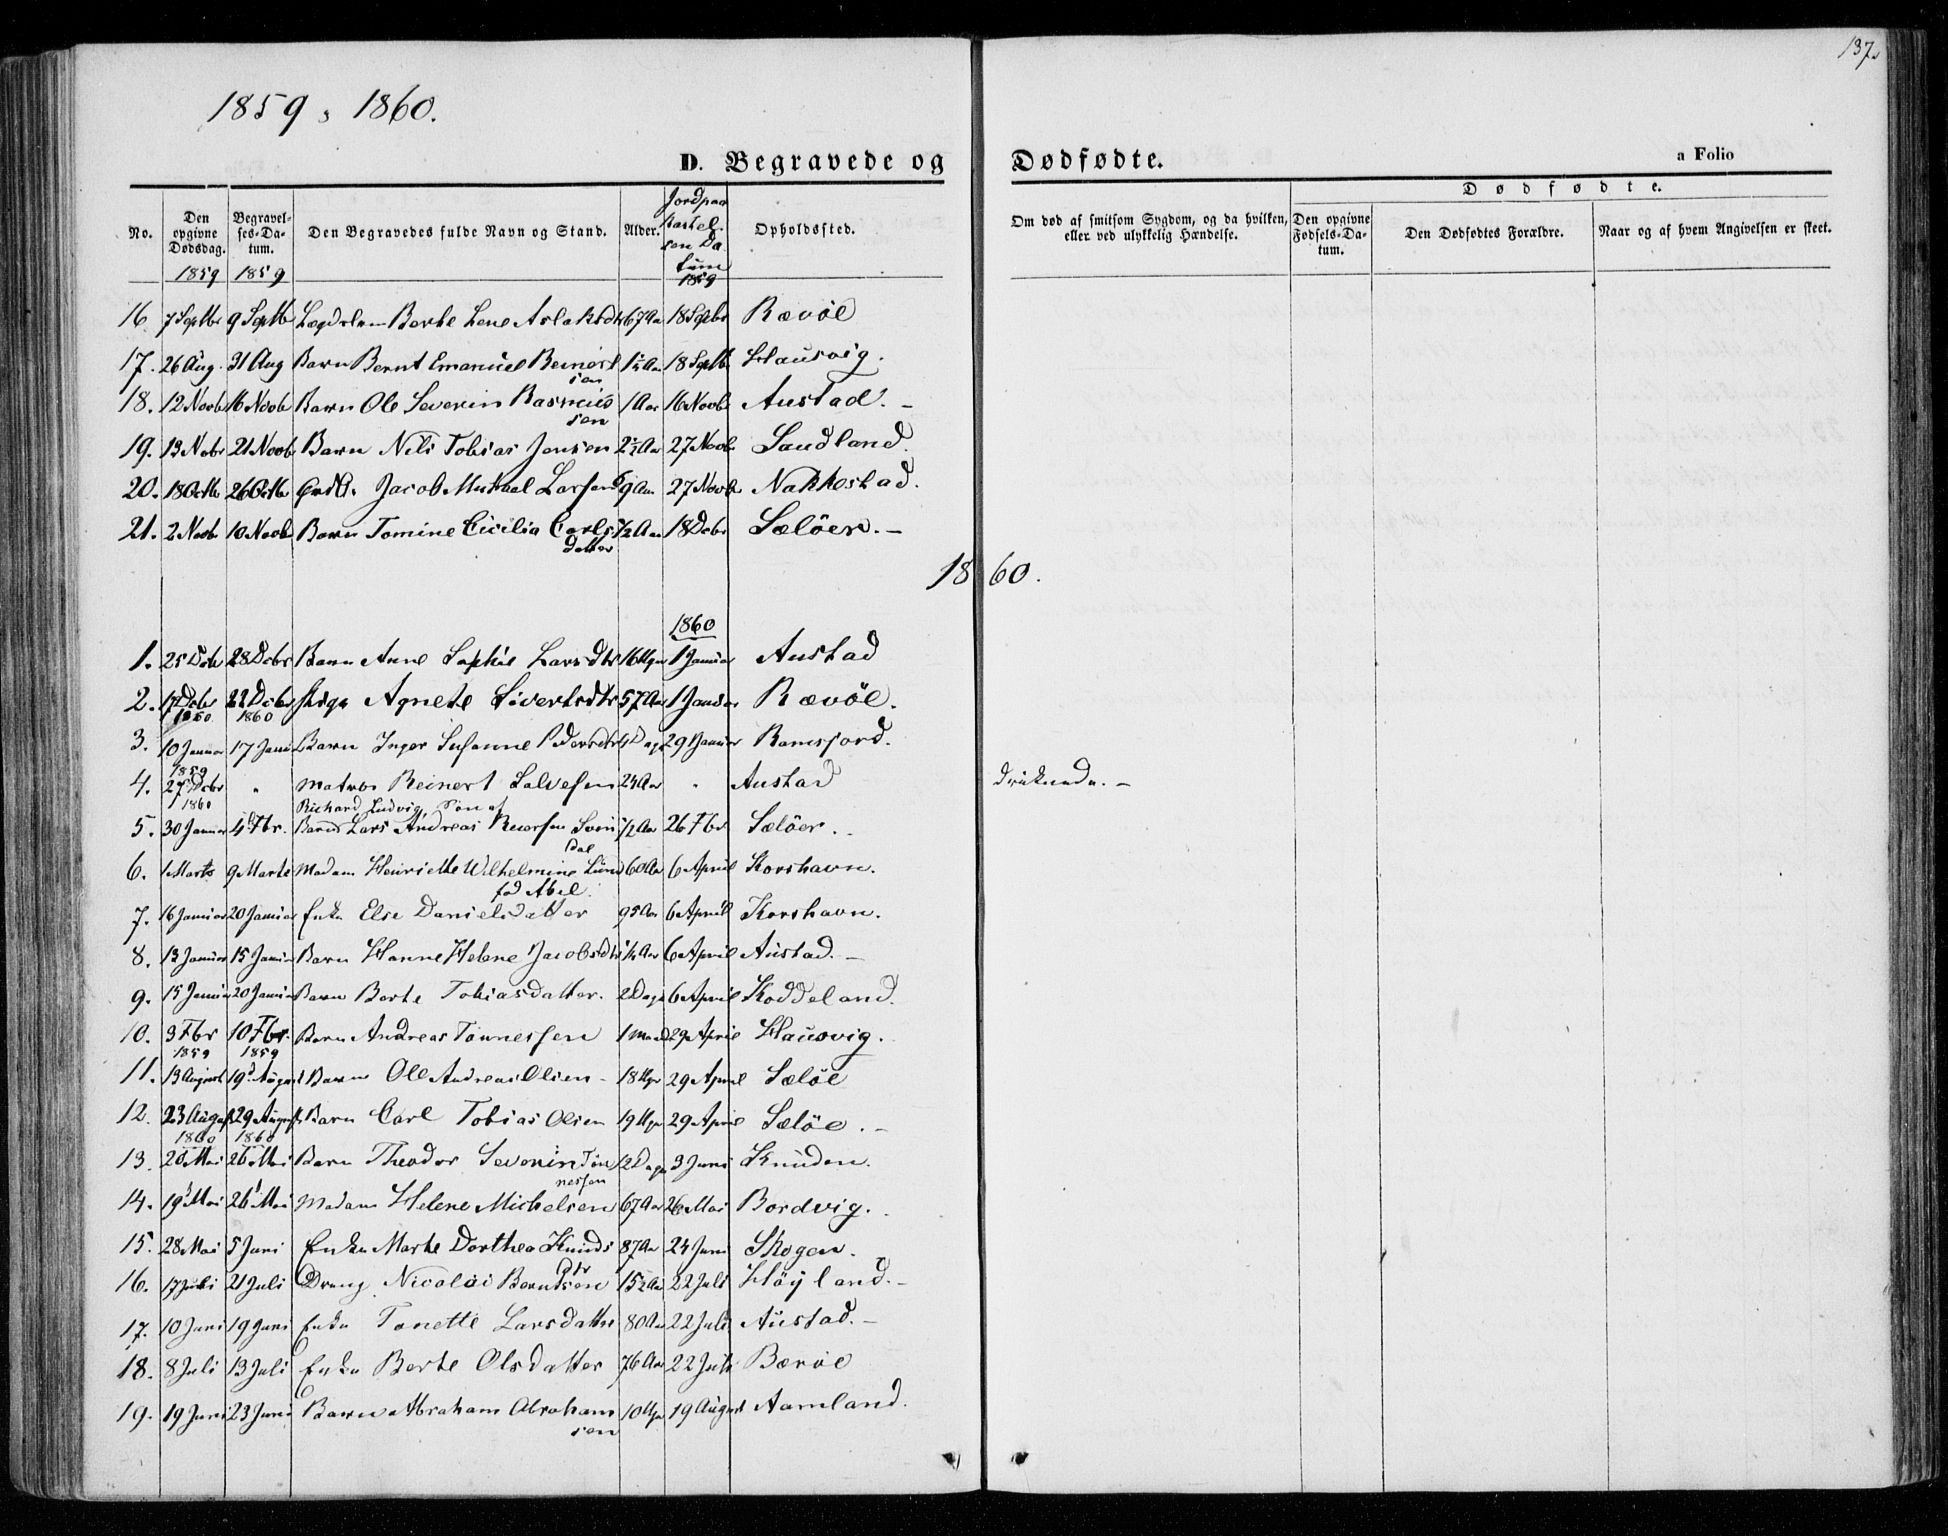 137.
1859 & 1860.
D. Begravede og Dødfødte. a Folio
No. Den opgivne Dødsdag. Begravelses-Datum. Den Begravedes fulde Navn og Stand. Alder. Jordpaakastelsen Datum Opholdssted. Om død af smitsom Sygdom, og da hvilken, eller ved ulykkelig Hændelse. Dødfødte. Den opgivne Fødsels-Datum. Den Dødfødtes Forældre. Naar og af hvem Angivelsen er skeet.
1859 1859 1859
16 7 Septbr 9 Septb Berte Lene Aslaksdtr 67 Aar 18 Septbr Rævöe
17. 26 Aug. 31 Aug Barn Bernt Emanuel Reinertsen 1½ Aar 18 Septb Hausvig.
18. 12 Novb 16 Novb Barn Ole Severin Rasmussen 1 Aar 16 Novb Austad. -
19. 13 Nobr 21 Novb Barn Nils Tobias Jensen 2½ Aar 27 Novb Sandland.
20. 18 Octb 26 Octb Jacob Michael Larsen 69 Aar 27 Novb Nakkestad.
21. 2 Novb 10 Novb Barn Tomine Cicilia Carlsdatter ½ Aar 18 Dcbr Sælöer. -
1860.
1860
1. 25 Dcbr 28 Dcbr Barn Anne Sophie Larsdtr 16 Uger 1 Januar Austad
2. 17 Dcbr 22 Dcbr Pige Agnete Siverstdtr 57 Aar 1 Januar Rævöe.
1860 1860
3. 10 Januar 17 Janu Barn Inger Susanne Pedersdtr 4 Dage 29 Januar Ramsfjord.
1859
4. 27 Dcbr " Matros Reinert Salvesen 24 Aar " Austad druknede. -
1860 Richard Ludvig, Søn af
5. 30 Januar 4 Fbr. Lars Andreas Reiersen Svindal ½ Aar 26 Fbr Sælöer. -
6. 1 Marts 9 Marts Madam Henriette Wilhelmine Lund fød Abel. 60 Aar 6 April Korshavn.
7. 16 Januar 20 Januar Enke Else Danielsdatter 95 Aar 6 April Korshavn.
8. 13 Januar 15 Januar Barn Hanne Helene Jacobsdtr ¼ Aar 6 April Austad. -
9. 15 Januar 20 Januar Barn Berte Tobiasdatter. 2 Dage 6 April Koddeland.
10. 3 Fbr 10 Fbr. Barn Andreas Tønnessen 1 Maaned 29 April Hausvig.
1859 1859
11. 13 August 19 August Barn Ole Andreas Olsen - 18 Uger 29 April Sælöe
12. 23 August 29 August Barn Carl Tobias Olsen 19 Uger 29 April Sælöe. -
1860 1860
13. 20 Mai 26 Mai Barn Theodor Severin Tønnessen 12 Dage 3 Juni Knuden.
14. 19 Mai 26 Mai Madam Helene Michelsen 67 Aar 26 Mai Bordvig.
15. 28 Mai 5 Juni Enke Marte Dorthea Knudsdtr 87 Aar 24 Juni Skogen.
16. 17 Juli 21 Juli Dreng Nicolai Berndtsen 15½ Aar 22 Juli Höyland. -
17. 10 Juni 19 Juni Enke Tonette Larsdatter 80 Aar 22 Juli Austad. -
18. 8 Juli 13 Juli Enke Berte Olsdatter 76 Aar 22 Juli Bæröe
19. 19 Juni 23 Juni Barn Abraham Abrahamsen 10 Uger 19 August Aamland.